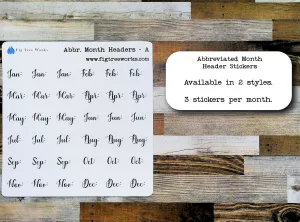 Fig Tree Works
Abbr. Month Headers - A
www.figtreeworks.com
Jan: Jan: Jan: Feb: Feb: Feb:
Mar: Mar: Mar: Apr: Apr: Apr:
May: May: May: Jun: Jun: Jun:
Jul: Jul: Jul: Aug: Aug: Aug:
Sep: Sep: Sep: Oct: Oct: Oct:
Nov: Nov: Nov: Dec: Dec: Dec:
Abbreviated Month
Header Stickers
Available in 2 styles.
3 stickers per month.